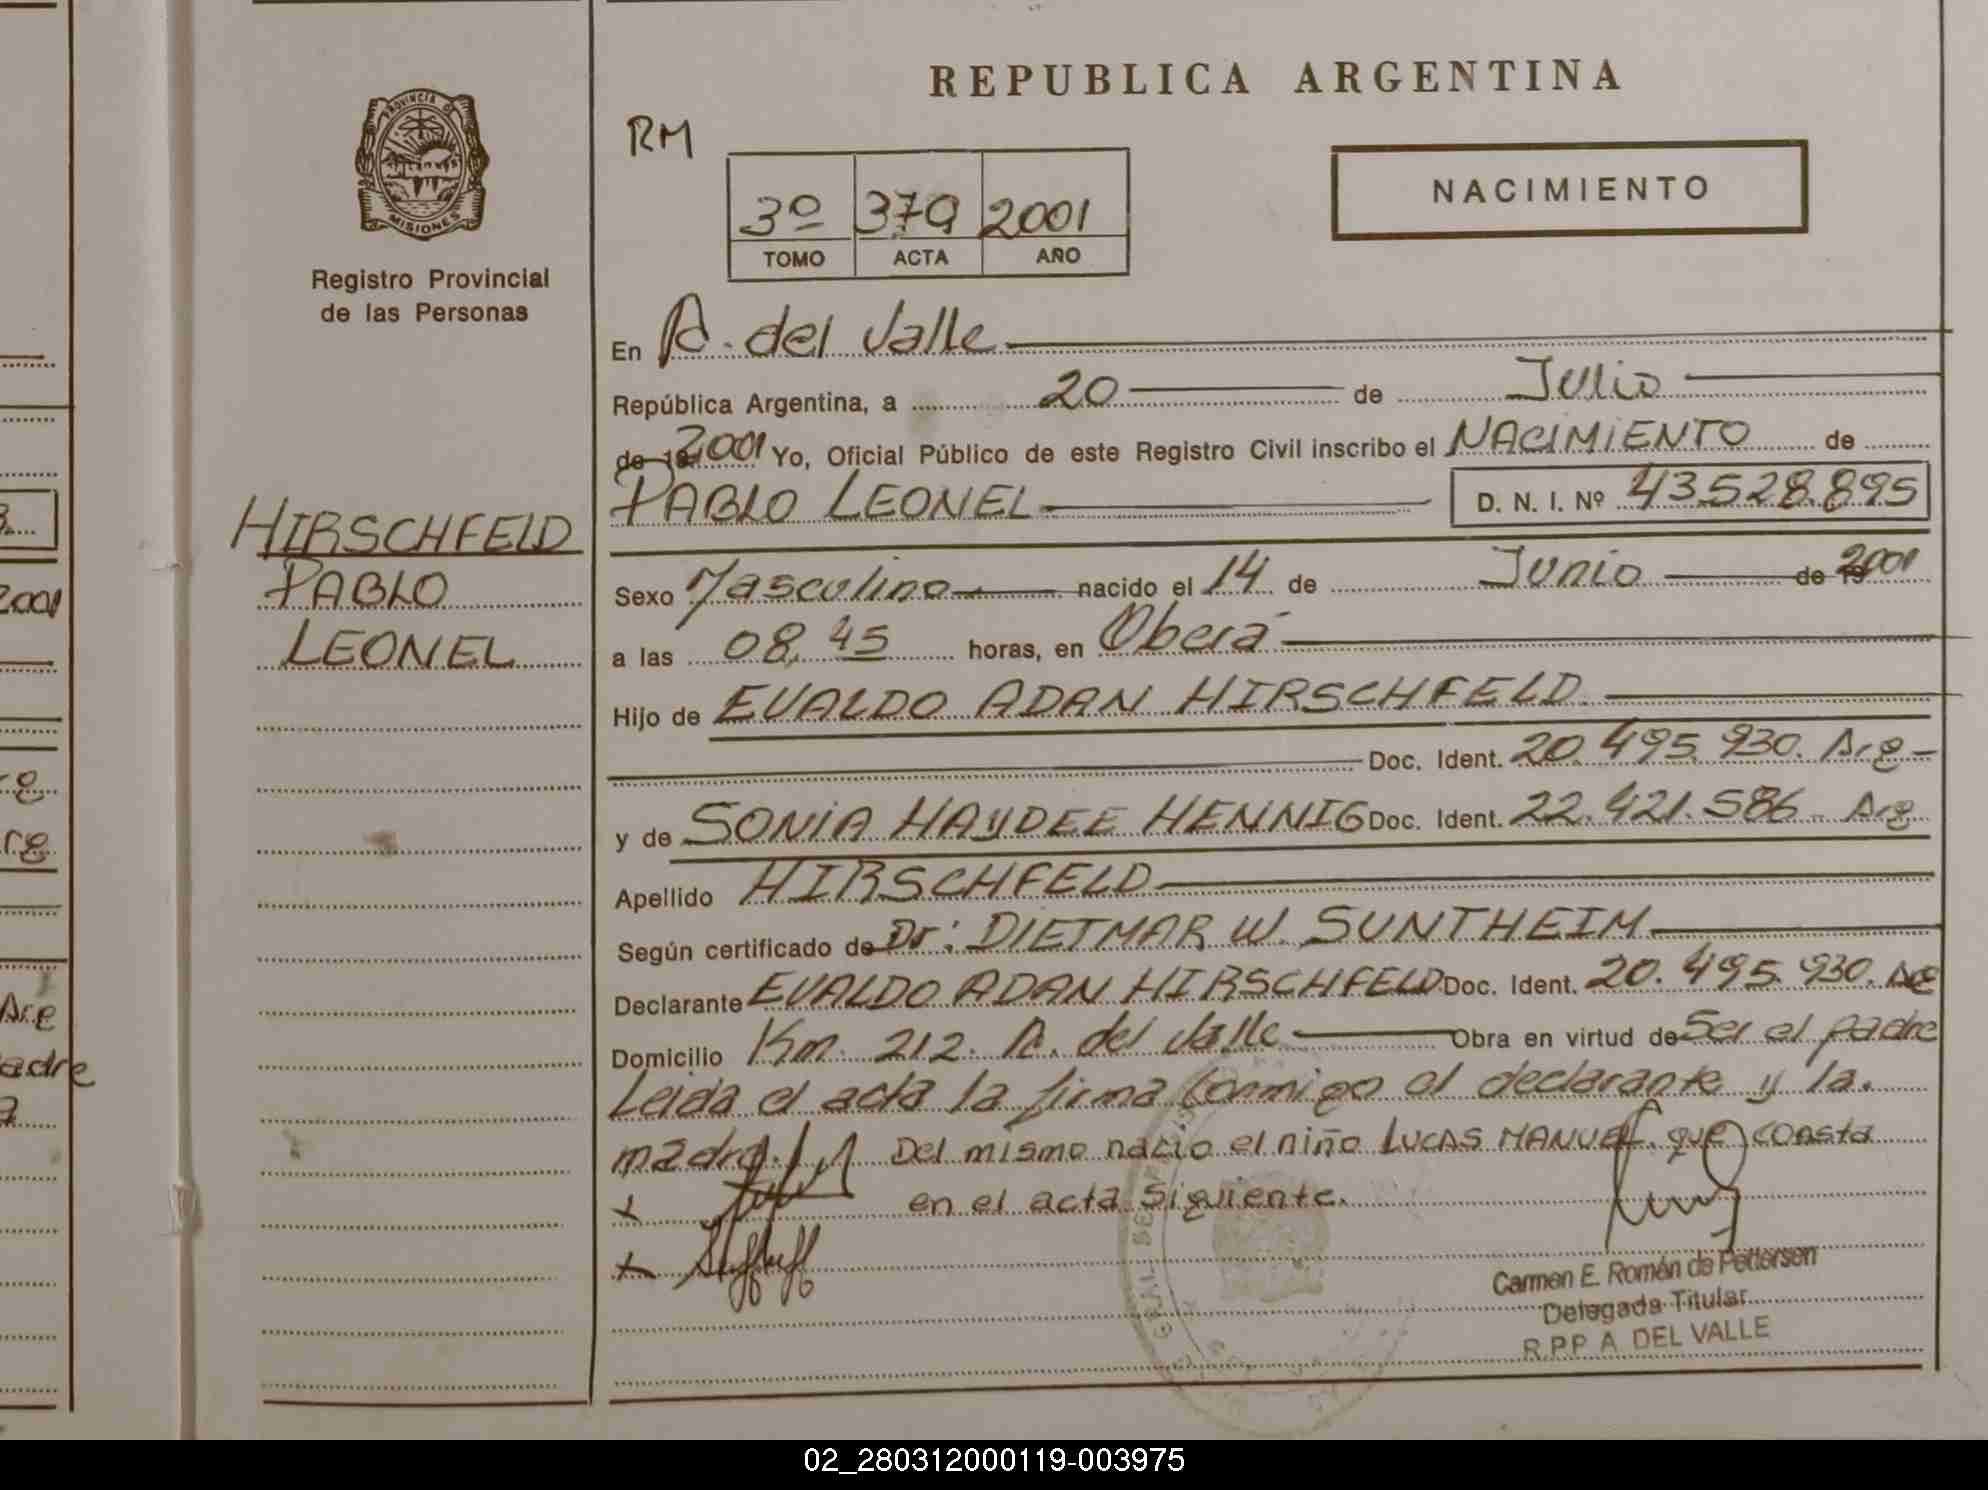 REPUBLICA ARGENTINA
PROVINCIA DE
MISIONES
Registro Provincial
de las Personas
RM
3º 379 2001
TOMO ACTA AÑO
NACIMIENTO
HIRSCHFELD
PABLO
LEONEL
En A. del Valle
República Argentina, a 20 de Julio
de 19 2001 Yo, Oficial Público de este Registro Civil inscribo el NACIMIENTO de
PABLO LEONEL D. N. I. Nº 43.528.895
Sexo Masculino nacido el 14 de Junio de 19 2001
a las 08,45 horas, en Oberá
Hijo de EVALDO ADAN HIRSCHFELD
Doc. Ident. 20.495.930. Arg
y de SONIA HAYDEE HENNIG Doc. Ident. 22.421.586 Arg
Apellido HIRSCHFELD
Según certificado de Dr: DIETMAR W. SUNTHEIM
Declarante EVALDO ADAN HIRSCHFELD Doc. Ident. 20.495.930. Arg
Domicilio Km. 212. A. del Valle Obra en virtud de Ser el padre
Leida el acta la firma conmigo el declarante y la
madre. Del mismo nacio el niño LUCAS MANUEL que consta
en el acta siguiente.
Carmen E. Román de Pettersen
Delegada Titular
R.P.P A. DEL VALLE
02_280312000119-003975